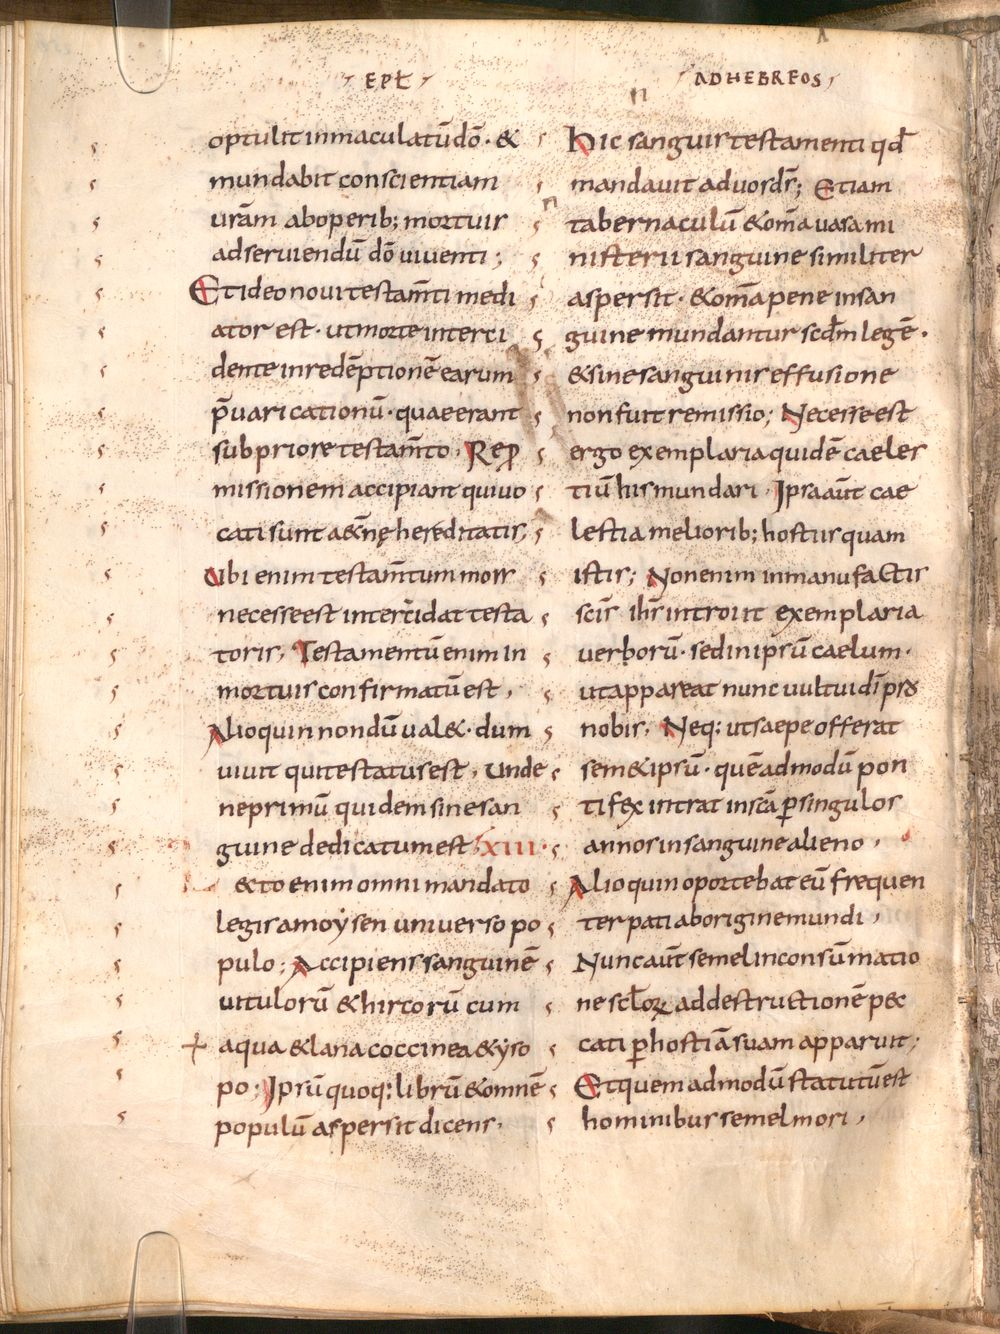 EPƚ
AD HEBREOS
optulit inmaculatū dō· &
mundabit conscientiam
urām ab operib; mortuis
ad seruiendū dō uiuenti;
Et ideo noui testam̄ti medi
ator est· ut morte interci
dente in redēptionē earum
p̄uaricationū· quae erant
sub priore testam̄to, Rep̱
missionem accipiant qui uo
cati sunt a&nę hereditatis;
Ubi enim testam̄tum mors
necesse est intercidat testa
toris, Testamentū enim in
mortuis confirmatū est,
Alioquin nondū ual&· dum
uiuit qui testatus est, unde
ne primū quidem sine san
guine dedicatum est, XIII·
L&to enim omni mandato
legis a moẏsen uniuerso po
pulo; Accipiens sanguinē
uitulorū & hircorū cum
+ aqua & lana coccinea & ẏso
po; Ipsū quoq: librū & omnē
populū aspersit dicens,
Hic sanguis testamenti qđ
mandauit ad uos ds̄; Etiam
tabernaculū & om̄a uasa mi
nisterii sanguine similiter
aspersit· & om̄a pene in san
guine mundantur scđm legē·
& sine sanguinis effusione
non fuit remissio; Necesse est
ergo exemplaria quidē caeles
tiū his mundari, Ipsa aūt cae
lestia meliorib; hostiis quam
istis; Non enim in manufactis
scīs ih̄s introiit exemplaria
uerborū· sed in ipsū caelum·
ut appareat nunc uultui dī pro
nobis, Neq: ut saepe offerat
sem&ipsū· quēadmodū pon
tifex intrat in scā ꝑ singulos
annos in sanguine alieno,
Alioquin oportebat eū frequen
ter pati ab origine mundi,
Nunc aūt semel in consūmatio
ne scłorꝝ ad destructionē pec
cati ꝑ hostiā suam apparuit;
Et quemadmodū statutū est
hominibus semel mori,